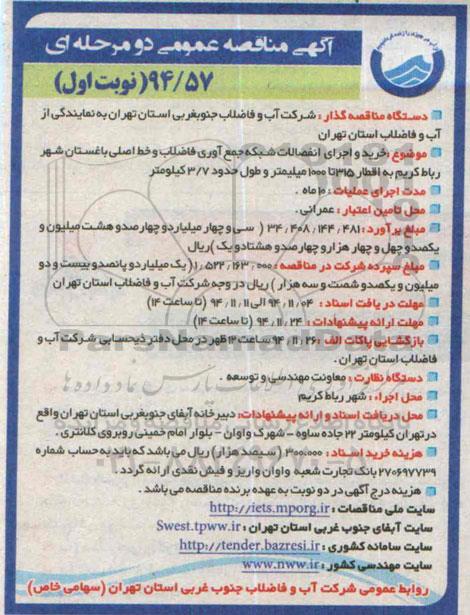 آگهی مناقصه عمومی دو مرحله ای
۹۴/۵۷ (نوبت اول)
دستگاه مناقصه گذار : شرکت آب و فاضلاب جنوبغربی استان تهران به نمایندگی از
آب و فاضلاب استان تهران
موضوع : خرید و اجرای انفصالات شبکه جمع آوری فاضلاب و خط اصلی باغستان شهر
رباط کریم به اقطار ۳۱۵ تا ۱۰۰۰ میلیمتر و طول حدود ۳/۷ کیلومتر
مدت اجرای عملیات : ۱۰ ماه .
محل تامین اعتبار : عمرانی .
مبلغ برآورد : ۳۴،۴۰۸،۱۴۴،۴۸۱ ( سی و چهار میلیارد و چهارصد و هشت میلیون و
یکصد و چهل و چهار هزار و چهارصد و هشتاد و یک ) ریال
مبلغ سپرده شرکت در مناقصه : ۱،۵۲۲،۱۶۳،۰۰۰ ( یک میلیارد و پانصد و بیست و دو
میلیون و یکصد و شصت و سه هزار ) ریال در وجه شرکت آب و فاضلاب استان تهران
مهلت دریافت اسناد : ۹۴،۱۱،۰۴ الی ۹۴،۱۱،۱۱ (تا ساعت ۱۴)
مهلت ارائه پیشنهادات : ۹۴،۱۱،۲۴ (تا ساعت ۱۴)
بازگشایی پاکات الف : ۹۴،۱۱،۲۶ ساعت ۱۲ ظهر در محل دفتر ذیحسابی شرکت آب و
فاضلاب استان تهران .
دستگاه نظارت : معاونت مهندسی و توسعه .
محل اجراء : شهر رباط کریم
محل دریافت اسناد و ارائه پیشنهادات : دبیرخانه آبفای جنوبغربی استان تهران واقع
در تهران کیلومتر ۲۳ جاده ساوه - شهرک واوان - بلوار امام خمینی روبروی کلانتری .
هزینه خرید اسناد : ۳۰۰،۰۰۰ (سیصد هزار) ریال می باشد که باید به حساب شماره
۲۷۰۶۹۷۷۳۹ بانک تجارت شعبه واوان واریز و فیش نقدی ارائه گردد .
هزینه درج آگهی در دو نوبت به عهده برنده مناقصه می باشد .
سایت ملی مناقصات : http://iets.mporg.ir
سایت آبفای جنوب غربی استان تهران : Swest.tpww.ir
سایت سامانه کشوری : http://tender.bazresi.ir
سایت مهندسی کشور : www.nww.ir
روابط عمومی شرکت آب و فاضلاب جنوب غربی استان تهران (سهامی خاص)